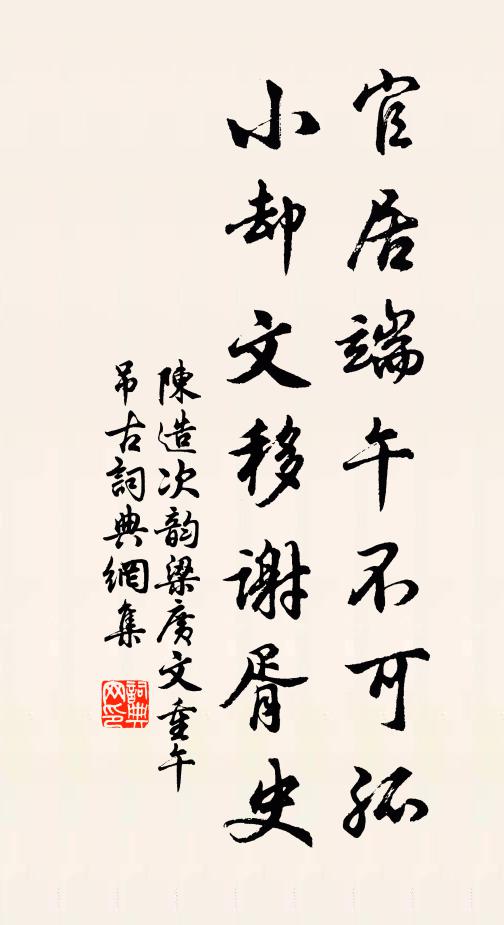 官居端午不可孤
小却文移谢胥史
陳造次韵梁廣文重午
吊古詞典網集
詞典
网印